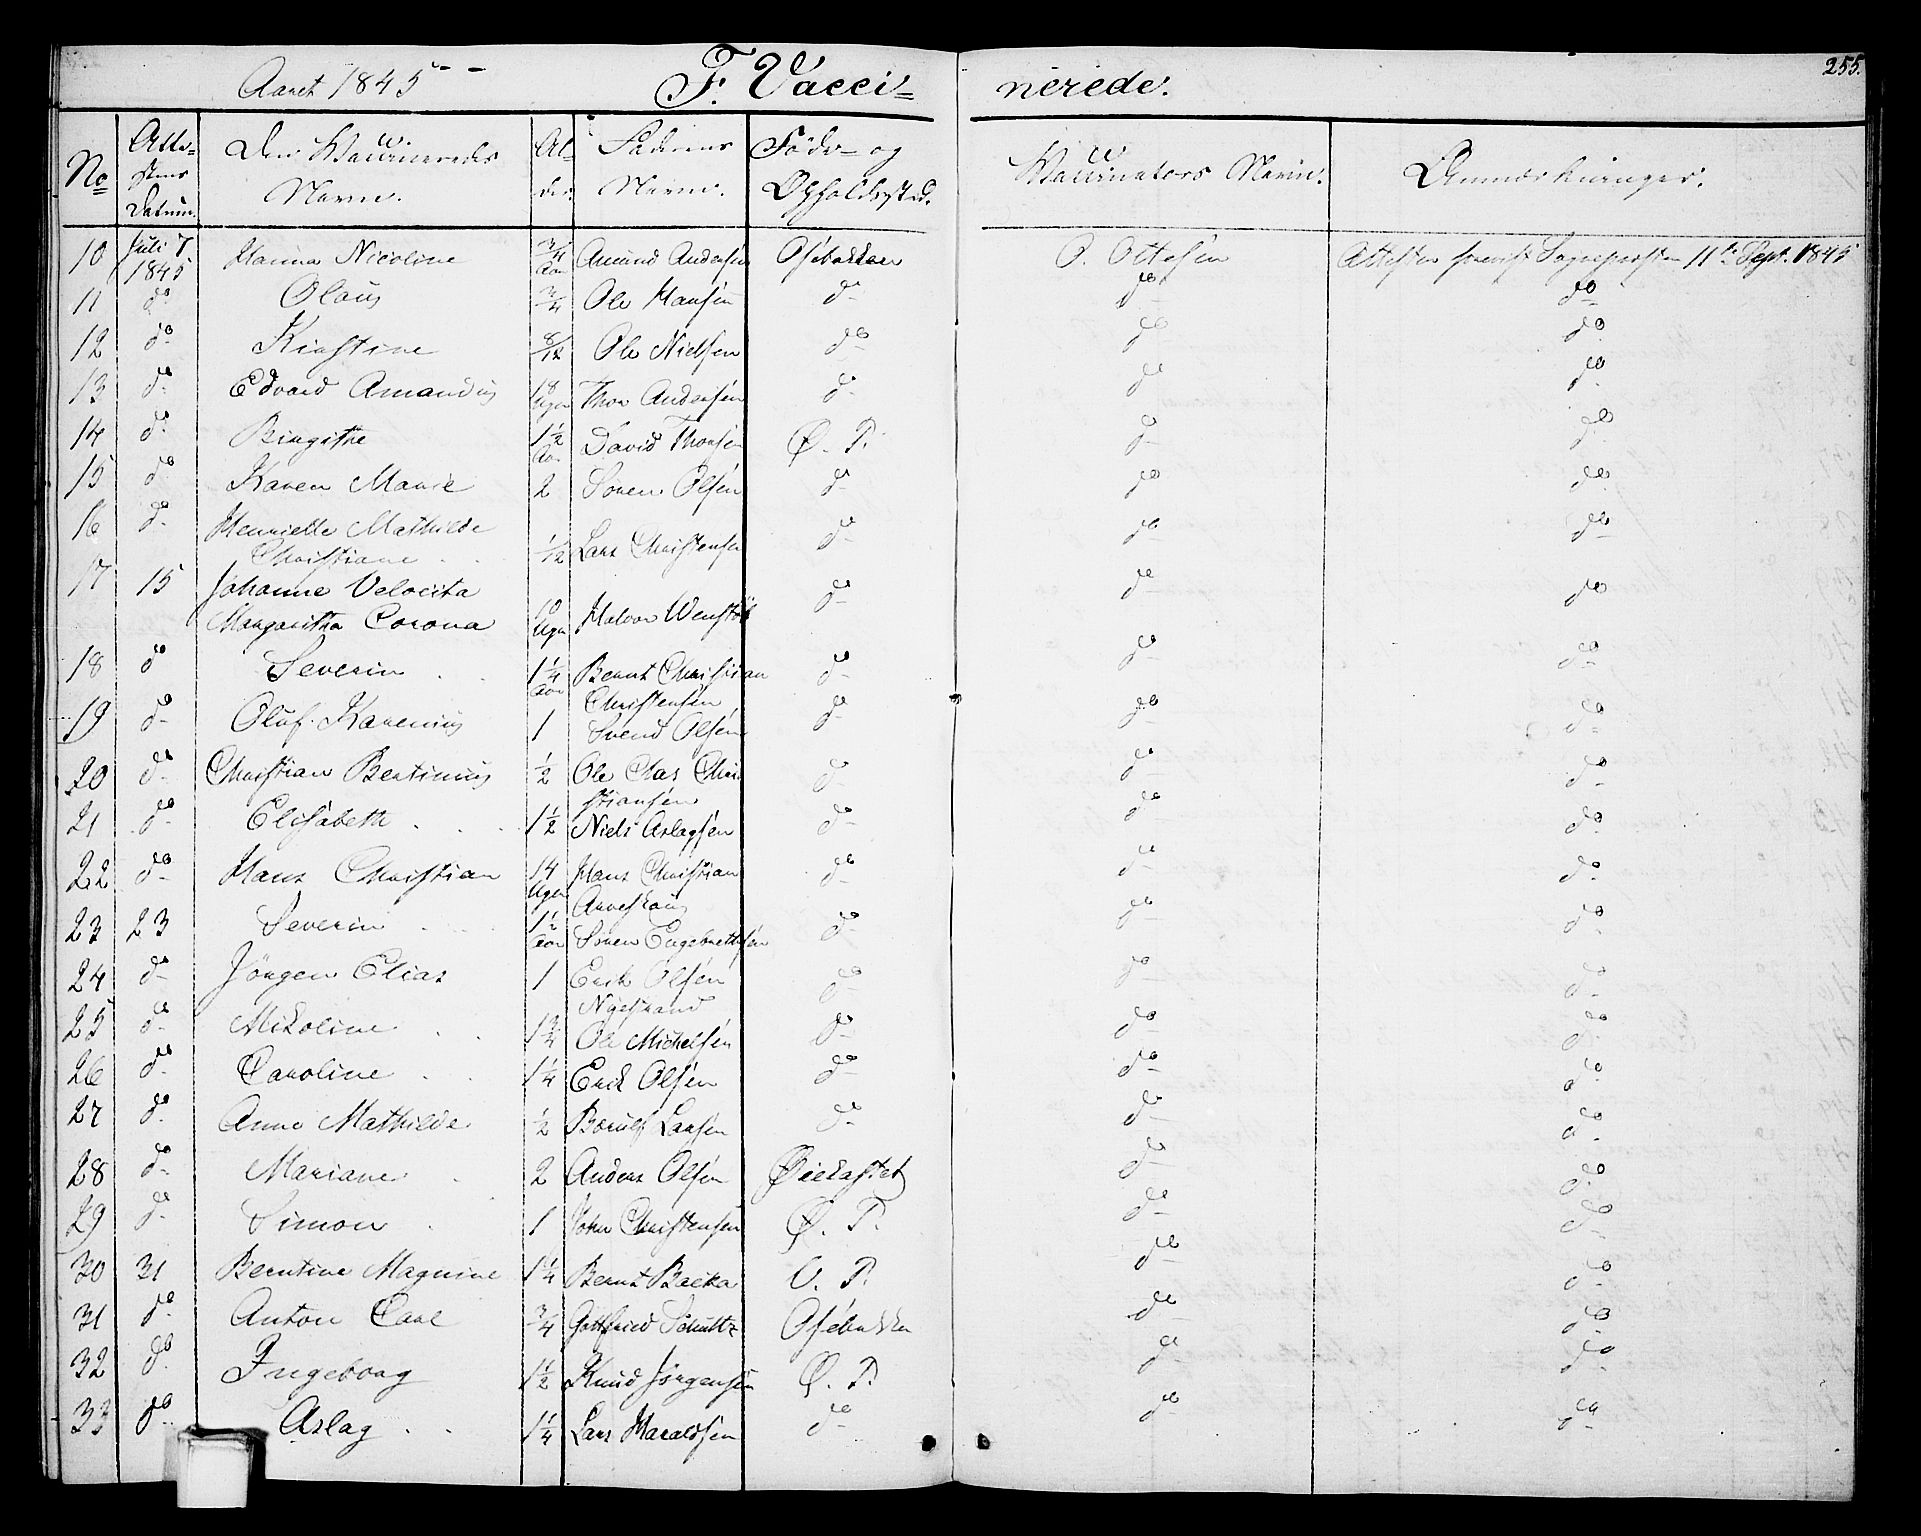 255.
Aaret 1845 F. Vacci= nerede.
No Attestens Datum. Den Vaccineredes Navn. Alder. Faderens Navn. Føde- og Opholdssted. Vaccinators Navn. Anmærkninger.
10 Juli 7 1845 Hanna Nicoline 3/4 Aar Amund Andersen Osebakken O. Ottesen Attesten forevist Sogneprsten 11te Sept. 1845
11 do Olaus 3/4 Ole Hansen do do do
12 do Kirstine 8/12 Ole Nielsen do do do
13 do Edvard Amandus 18 Uger Thor Andersen do do do
14 do Birgithe 1 1/2 Aar David Thorsen Ø. P. do do
15 do Karen Marie 2 Soren Olsen do do do
16 do Henriette Mathilde
Christiane 1/12 Lars Christensen do do do
17 15 Johanne Velocita
Margaritha Corona 10 Uger Halvor Wenstøb do do do
18 do Severin 1 1/4 Aar Bernt Christian
Christensen do do do
19 do Oluf Karenius 1 Svend Olsen do do do
20 do Christian Bertinius 1/2 Ole Clas Chri
stiansen do do do
21 do Elisabeth 1 1/2 Niels Aslagsen do do do
22 do Hans Christian 14 Uger Hans Christian
do do do
23 23 Severin 1 1/2 Aar Soren Engebrethsen do do do
24 do Jörgen Elias 1 Erik Olsen
Nystrand do do do
25 do Nikoline 1 3/4 Ole Michelsen do do do
26 do Caroline 1 1/4 Erik Olsen do do do
27 do Anne Mathilde 1/2 Børulf Larsen do do do
28 do Mariane 2 Anders Olsen Øiekastet do do
29 do Simon 1 John Christensen Ø. P. do do
30 31 Berntine Magnine 1 1/4 Bernt Backa V. P. do do
31 do Anton Carl 3/4 Gottfried Schultz Osebakken do do
32 do Ingeborg 1 1/2 Knud Jörgensen Ø. P. do do
33 do Aslag 1 1/4 Lars Haraldsen do do do